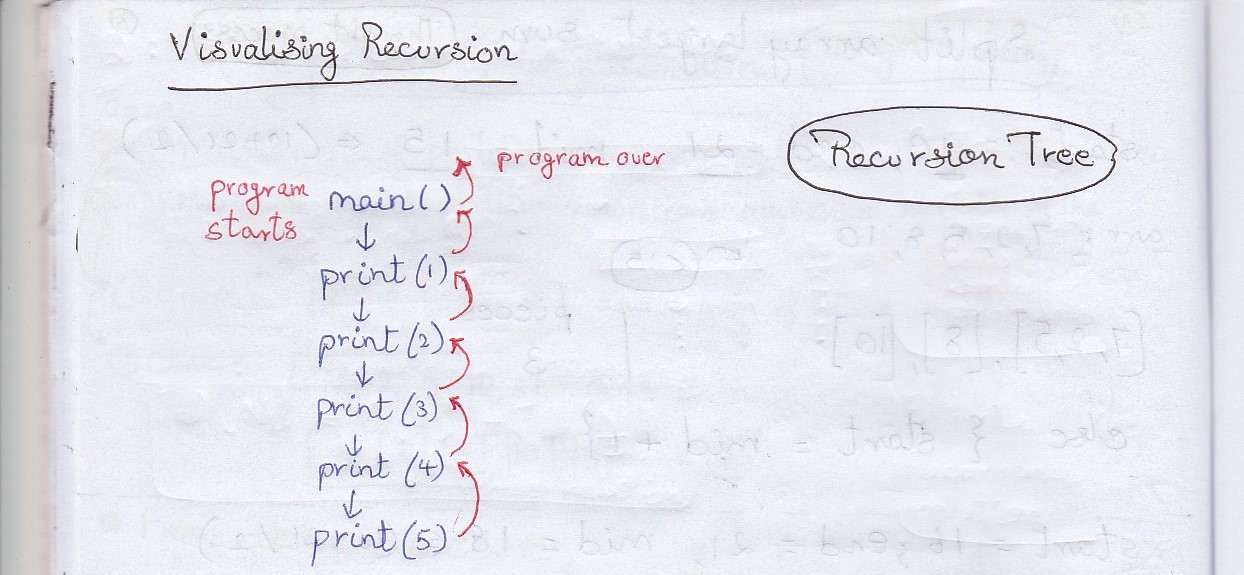 Visualising Recursion
Recursion Tree
program over
program
starts
main()
↓
print (1)
↓
print (2)
↓
print (3)
↓
print (4)
↓
print (5)